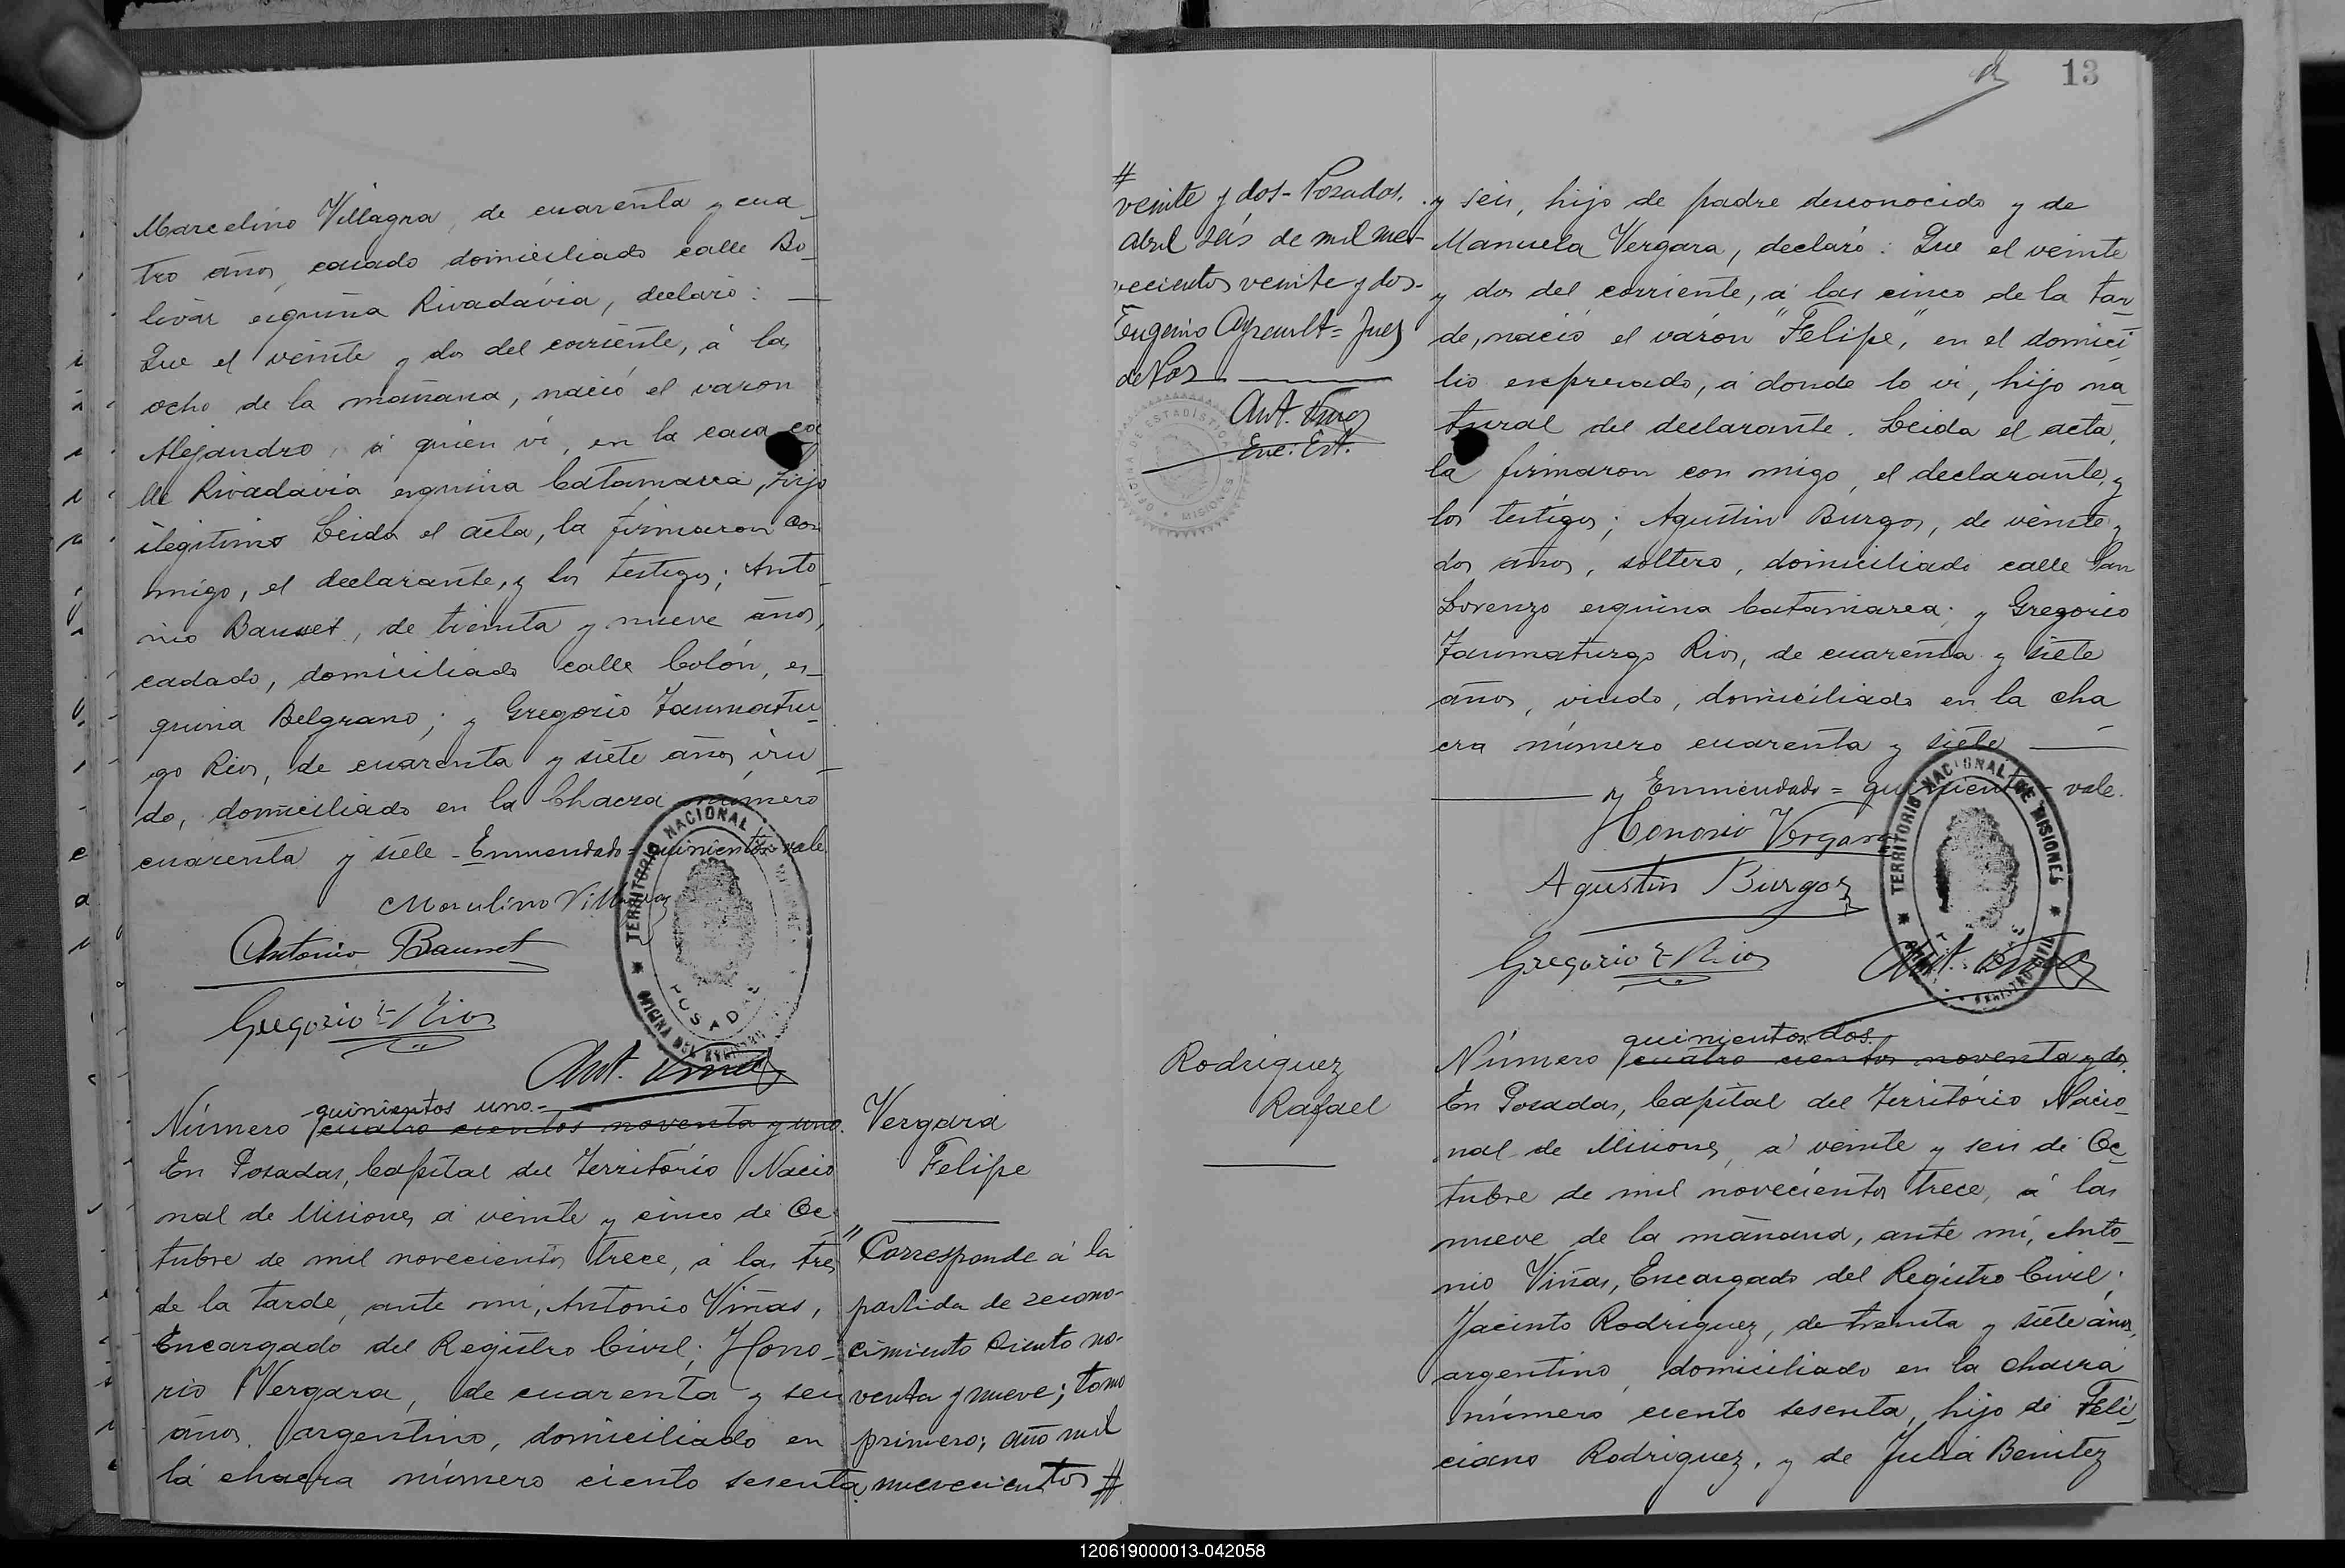 Marcelino Villagra, de cuarenta y cua_
tro años, casado domiciliado calle Bo_
livar esquina Rivadavia, declaró: —
Que el veinte y dos del corriente, á las
ocho de la mañana, nació el varon
Alejandro, á quien ví, en la casa ca
lle Rivadavia esquina Catamarca, hijo
ilegitimo Leida el acta, la firmaron con
migo, el declarante, y los testigos; Anto_
nio Bausset, de treinta y nueve años,
casado, domiciliado calle Colón, es_
quina Belgrano; y Gregorio Taumatur_
go Rios, de cuarenta y siete años, viu_
do, domiciliado en la Chacra número
cuarenta y siete - Enmendado = quinientos = vale
Marcelino Villagra
Antonio Bausset
Gregorio T. Rios
TERRITORIO NACIONAL DE MISIONES
OFICINA DEL REGISTRO CIVIL
POSADAS
Ant. Viñas
quinientos uno =
Número cuatro cientos noventa y uno.
En Posadas, Capital del Territorio Nacio
nal de Misiones á veinte y cinco de Oc_
tubre de mil novecientos trece, á las tres
de la tarde, ante mi, Antonio Viñas,
Encargado del Registro Civil; Hono_
rio Vergara, de cuarenta y seis
años, argentino, domiciliado en
la chacra número ciento sesenta
Vergara
Felipe
" Corresponde á la
partida de recono-
cimiento ciento no-
venta y nueve; tomo
primero; año mil
nuevecientos #
13
#
veinte y dos - Posadas.
Abril seis de mil nue-
vecientos veinte y dos.
Eugenio Ayrault = Juez
de Paz
Ant. Viñas
Enc. Est.
OFICINA DE ESTADISTICA
MISIONES
y seis, hijo de padre desconocido y de
Manuela Vergara, declaró: Que el veinte
y dos del corriente, á las cinco de la tar_
de, nació el varón "Felipe", en el domici_
lio expresado, á donde lo ví, hijo na_
tural del declarante. Leida el acta,
la firmaron con migo, el declarante, y
los testigos; Agustin Burgos, de veinte y
dos años, soltero, domiciliado calle San
Lorenzo esquina Catamarca; y Gregorio
Taumaturgo Rios, de cuarenta y siete
años, viudo, domiciliado en la cha_
cra número cuarenta y siete —
— y Enmendado = quinientos = vale.
Honorio Vergara
Agustin Burgos
Gregorio T. Rios
Ant. Viñas
TERRITORIO NACIONAL DE MISIONES
REGISTRO CIVIL
Rodriguez
Rafael
quinientos dos.
Número cuatro cientos noventa y dos.
En Posadas, Capital del Territorio Nacio_
nal de Misiones, á veinte y seis de Oc_
tubre de mil novecientos trece, á las
nueve de la mañana, ante mí, Anto_
nio Viñas, Encargado del Registro Civil;
Jacinto Rodriguez, de treinta y siete años,
argentino, domiciliado en la chacra
número ciento sesenta, hijo de Feli_
ciano Rodriguez, y de Julia Benitez
120619000013-042058